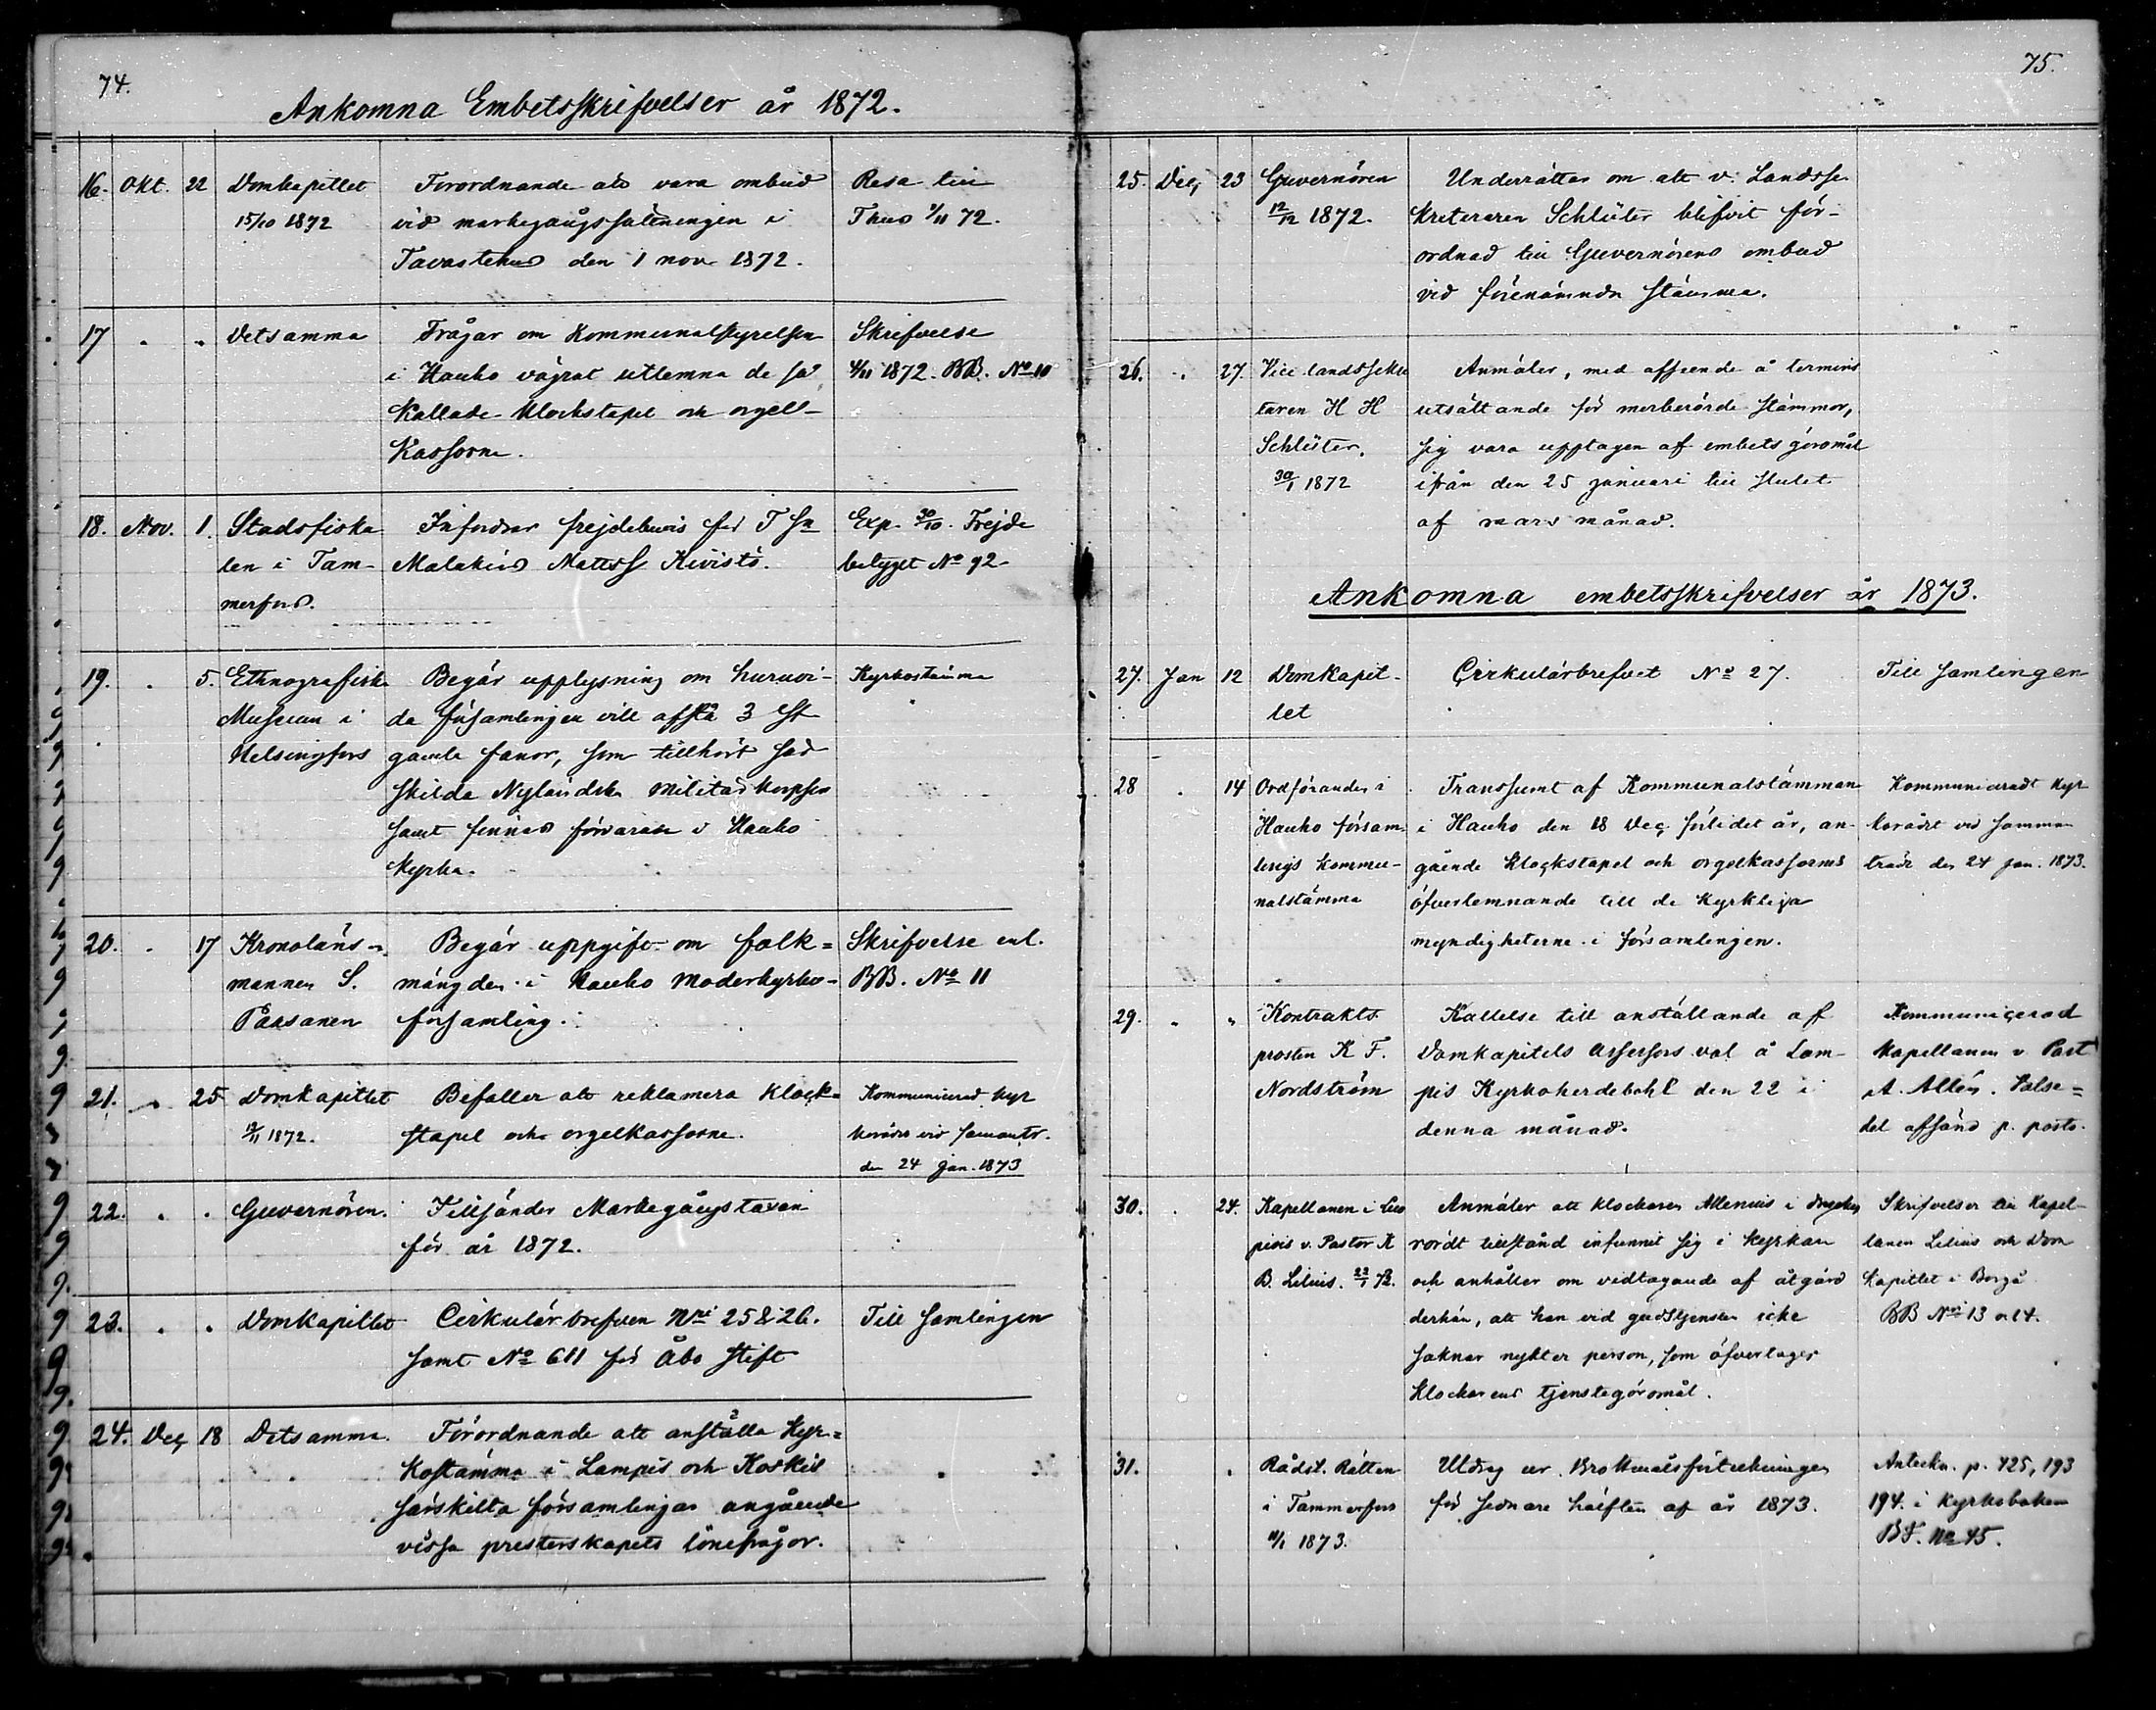 74.
Ankomna Embetsskrifvelser år 1872.
16. Okt. 22 Domkapitlet
15/10 1872
Förordnande att vara ombud
vid markegångssättningen i
Tavastehus den 1 nov. 1872.
Resa till
Thus 1/11 72.
17 " " Detsamma
Frågar om Kommunalstyrelsen
i Hauho vägrat utlemna de så
Kallade Klockstapel och orgel-
Kassorne.
Skrifvelse
4/11 1872. BB. No 10
18. Nov. 1. Stadsfiska
len i Tam-
merfors.
Infordrar frejdebevis för T Sn
Malakias Mattss Kivistö.
Exp. 30/10. Frejde
betyget No 92.
19. " 5. Ethnografiska
Museum i
Helsingfors
Begär upplysning om huruvi-
da församlingen vill afstå 3 st
gamla fanor, som tillhört sär
skilda Nyländska militärkorpser
samt finnas förvarade i Hauho
Kyrka.
Kyrkostämma
20. " 17 Kronoläns-
mannen S.
Paksanen
Begär uppgift om folk=
mängden i Hauho Moderkyrko-
församling.
Skrifvelse enl.
BB. No 11
21. " 25 Domkapitlet
12/11 1872.
Befaller att reklamera Klock-
stapel och orgelkassorne.
Kommunicerad kyr
korådet vid samantr.
den 24 jan. 1873
22. " " Guvernören.
Tillsänder Markegångstaxan
för år 1872.
23. " " Domkapitlet
Cirkulärbrefven Nris 25 & 26.
samt No 611 för Åbo stift
Till Samlingen
24. Dec 18 Detsamma.
Förordnande att anställa Kyr=
kostämma i Lampis och Koskis
särskilta församlingar angående
vissa presterskapets lönefrågor.
75.
25. Dec, 23 Guvernören
12/12 1872.
Underrättar om att v. Landsse-
kreteraren Schlüter blifvit för-
ordnad till Guvernörens ombud
vid förenämnda stämma.
26. " 27. Vice landssekre
taren H H
Schlüter.
30/1 1872
Anmäler, med afseende å termins
utsättande för merberörde stämmor,
sig vara upptagen af embets göromål
ifrån den 25 januari till slutet
af mars månad.
Ankomna embetsskrifvelser år 1873.
27. Jan 12 Domkapit-
let
Cirkulärbrefvet No 27.
Till Samlingen
28 " 14 Ordföranden i
Hauho försam-
lings kommu-
nalstämma
Transsumt af Kommunalstämman
i Hauho den 18 Dec, förlidet år, an-
gående Klockstapel och orgelkassorns
öfverlemnande till de Kyrkliga
myndigheterne i församlingen.
Kommuniceradt kyr
korådet vid samman
träde den 24 jan. 1873.
29. " " Kontrakts
prosten K F.
Nordström
Kallelse till anställande af
Domkapitels assessors val å Lam-
pis Kyrkoherdebohl den 22 i
denna månad.
Kommunicerad
Kapellanen v. Past
A. Allén. Valse=
del afsänd p. posto.
30. " 24. Kapellanen i Luo
piois v. Pastor K
B. Lilius. 22/1 73.
Anmäler att klockaren Allenius i drycken
rördt tillstånd infunnit sig i kyrkan
och anhåller om vidtagande af åtgärd
derhän, att han vid gudstjensten icke
saknar nykter person, som öfvertager
klockarens tjenstegöromål.
Skrifvelser till Kapel-
lanen Lilius och Dom
kapitlet i Borgå
BB Nris 13 o 14.
31. " Rådst. Rätten
i Tammerfors
11/1 1873.
Utdrag ur Brottmålsförteckningen
för sednare hälften af år 1873.
Anteckn. p. 425, 193
194. i kyrkoboken
BF. No 45.